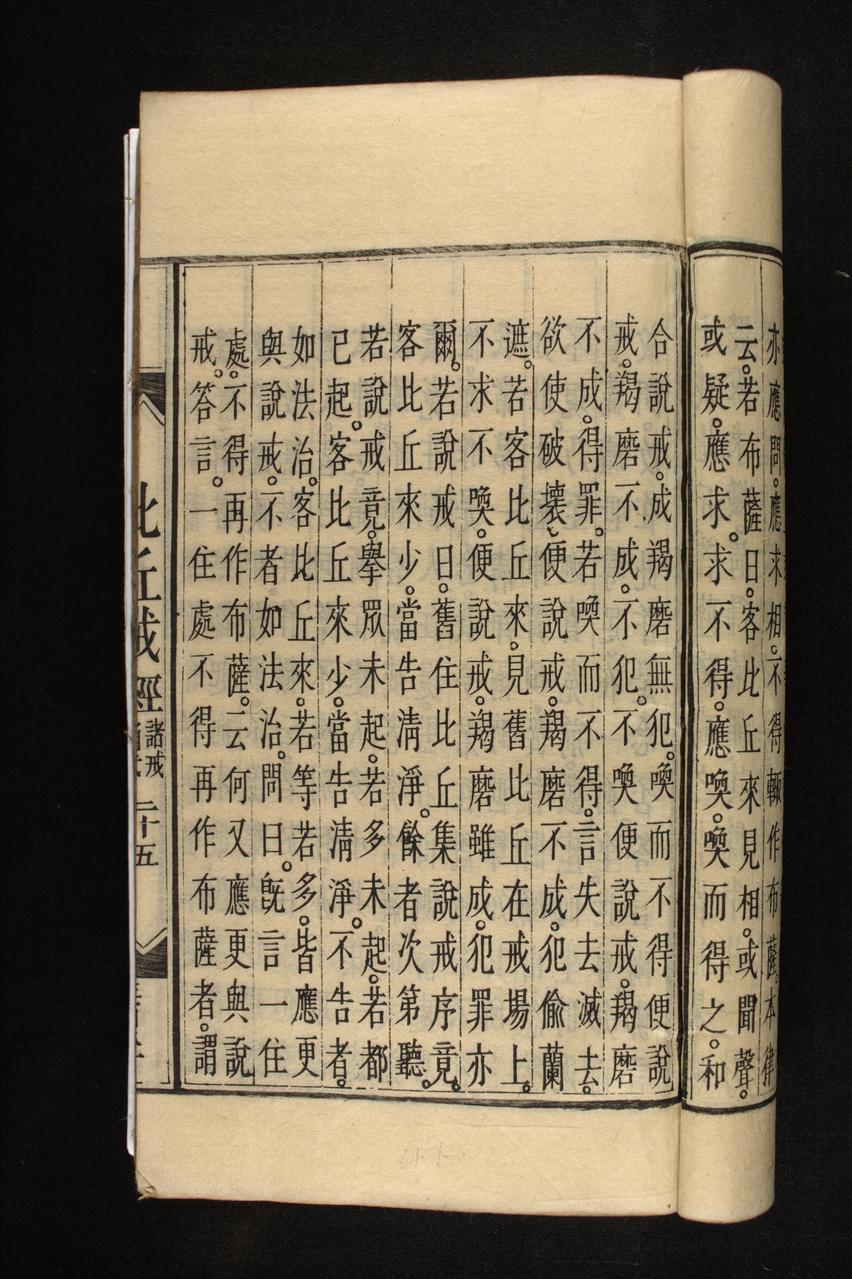 亦應問。應求相。不得輙作布薩。本律
云。若布薩日。客比丘來見相。或聞聲。
或疑。應求。求不得。應喚。喚而得之。和
合說戒。成羯磨無犯。喚而不得便說
戒。羯磨不成。不犯。不喚便說戒。羯磨
不成。得罪。若喚而不得。言失去滅去。
欲使破壞。便說戒。羯磨不成。犯偷蘭
遮。若客比丘來。見舊比丘在戒場上。
不求不喚。便說戒。羯磨雖成。犯罪亦
爾。若說戒日。舊住比丘集說戒序竟。
客比丘來少。當告清淨。餘者次第聽。
若說戒竟。擧眾未起。若多未起。若都
已起。客比丘來少。當告清淨。不告者。
如法治。客比丘來。若等若多。皆應更
與說戒。不者如法治。問曰。旣言一住
處。不得再作布薩。云何又應更與說
戒。答言。一住處不得再作布薩者。謂
比丘戒經 諸戒 二十五